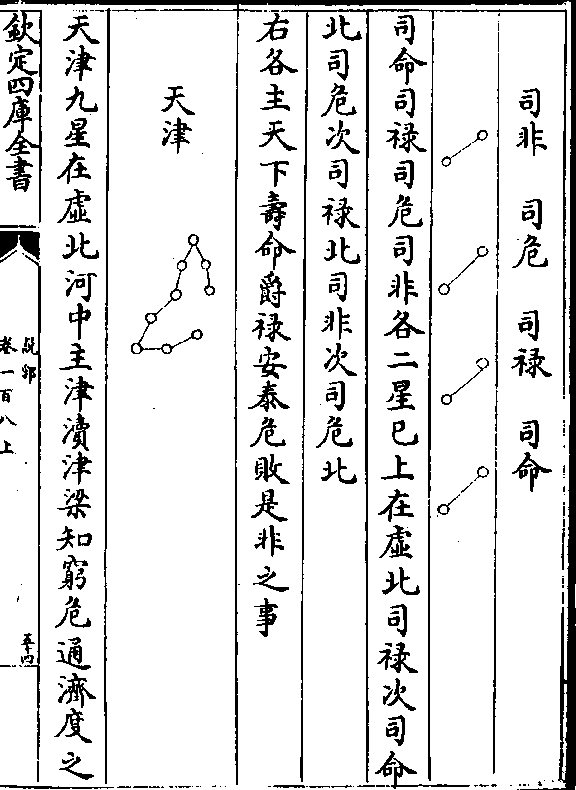 司非　司危　司禄　司命
司命司禄司危司非各二星已上在虚北司禄次司命
北司危次司禄北司非次司危北
右各主天下壽命爵禄安泰危敗是非之事
天津
天津九星在虚北河中主津瀆津梁知窮危通濟度之
欽定四庫全書
說郛
卷一百八上
五十四